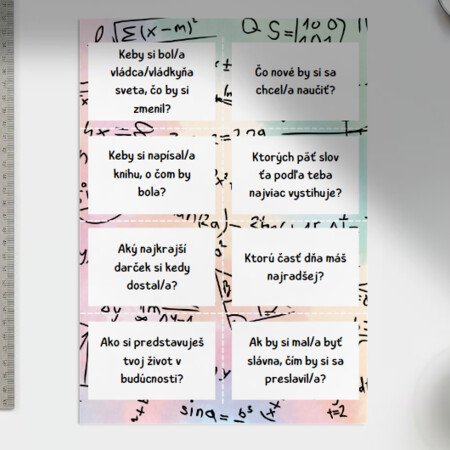 Keby si bol/a
vládca/vládkyňa
sveta, čo by si
zmenil?
Čo nové by si sa
chcel/a naučiť?
Keby si napísal/a
knihu, o čom by
bola?
Ktorých päť slov
ťa podľa teba
najviac vystihuje?
Aký najkrajší
darček si kedy
dostal/a?
Ktorú časť dňa máš
najradšej?
Ako si predstavuješ
tvoj život v
budúcnosti?
Ak by si mal/a byť
slávna, čím by si sa
preslavil/a?